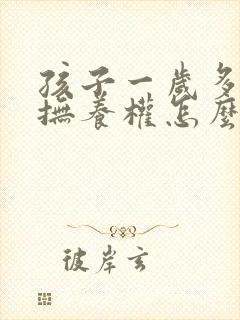 孩子一歲多
撫養權怎麼
彼岸玄